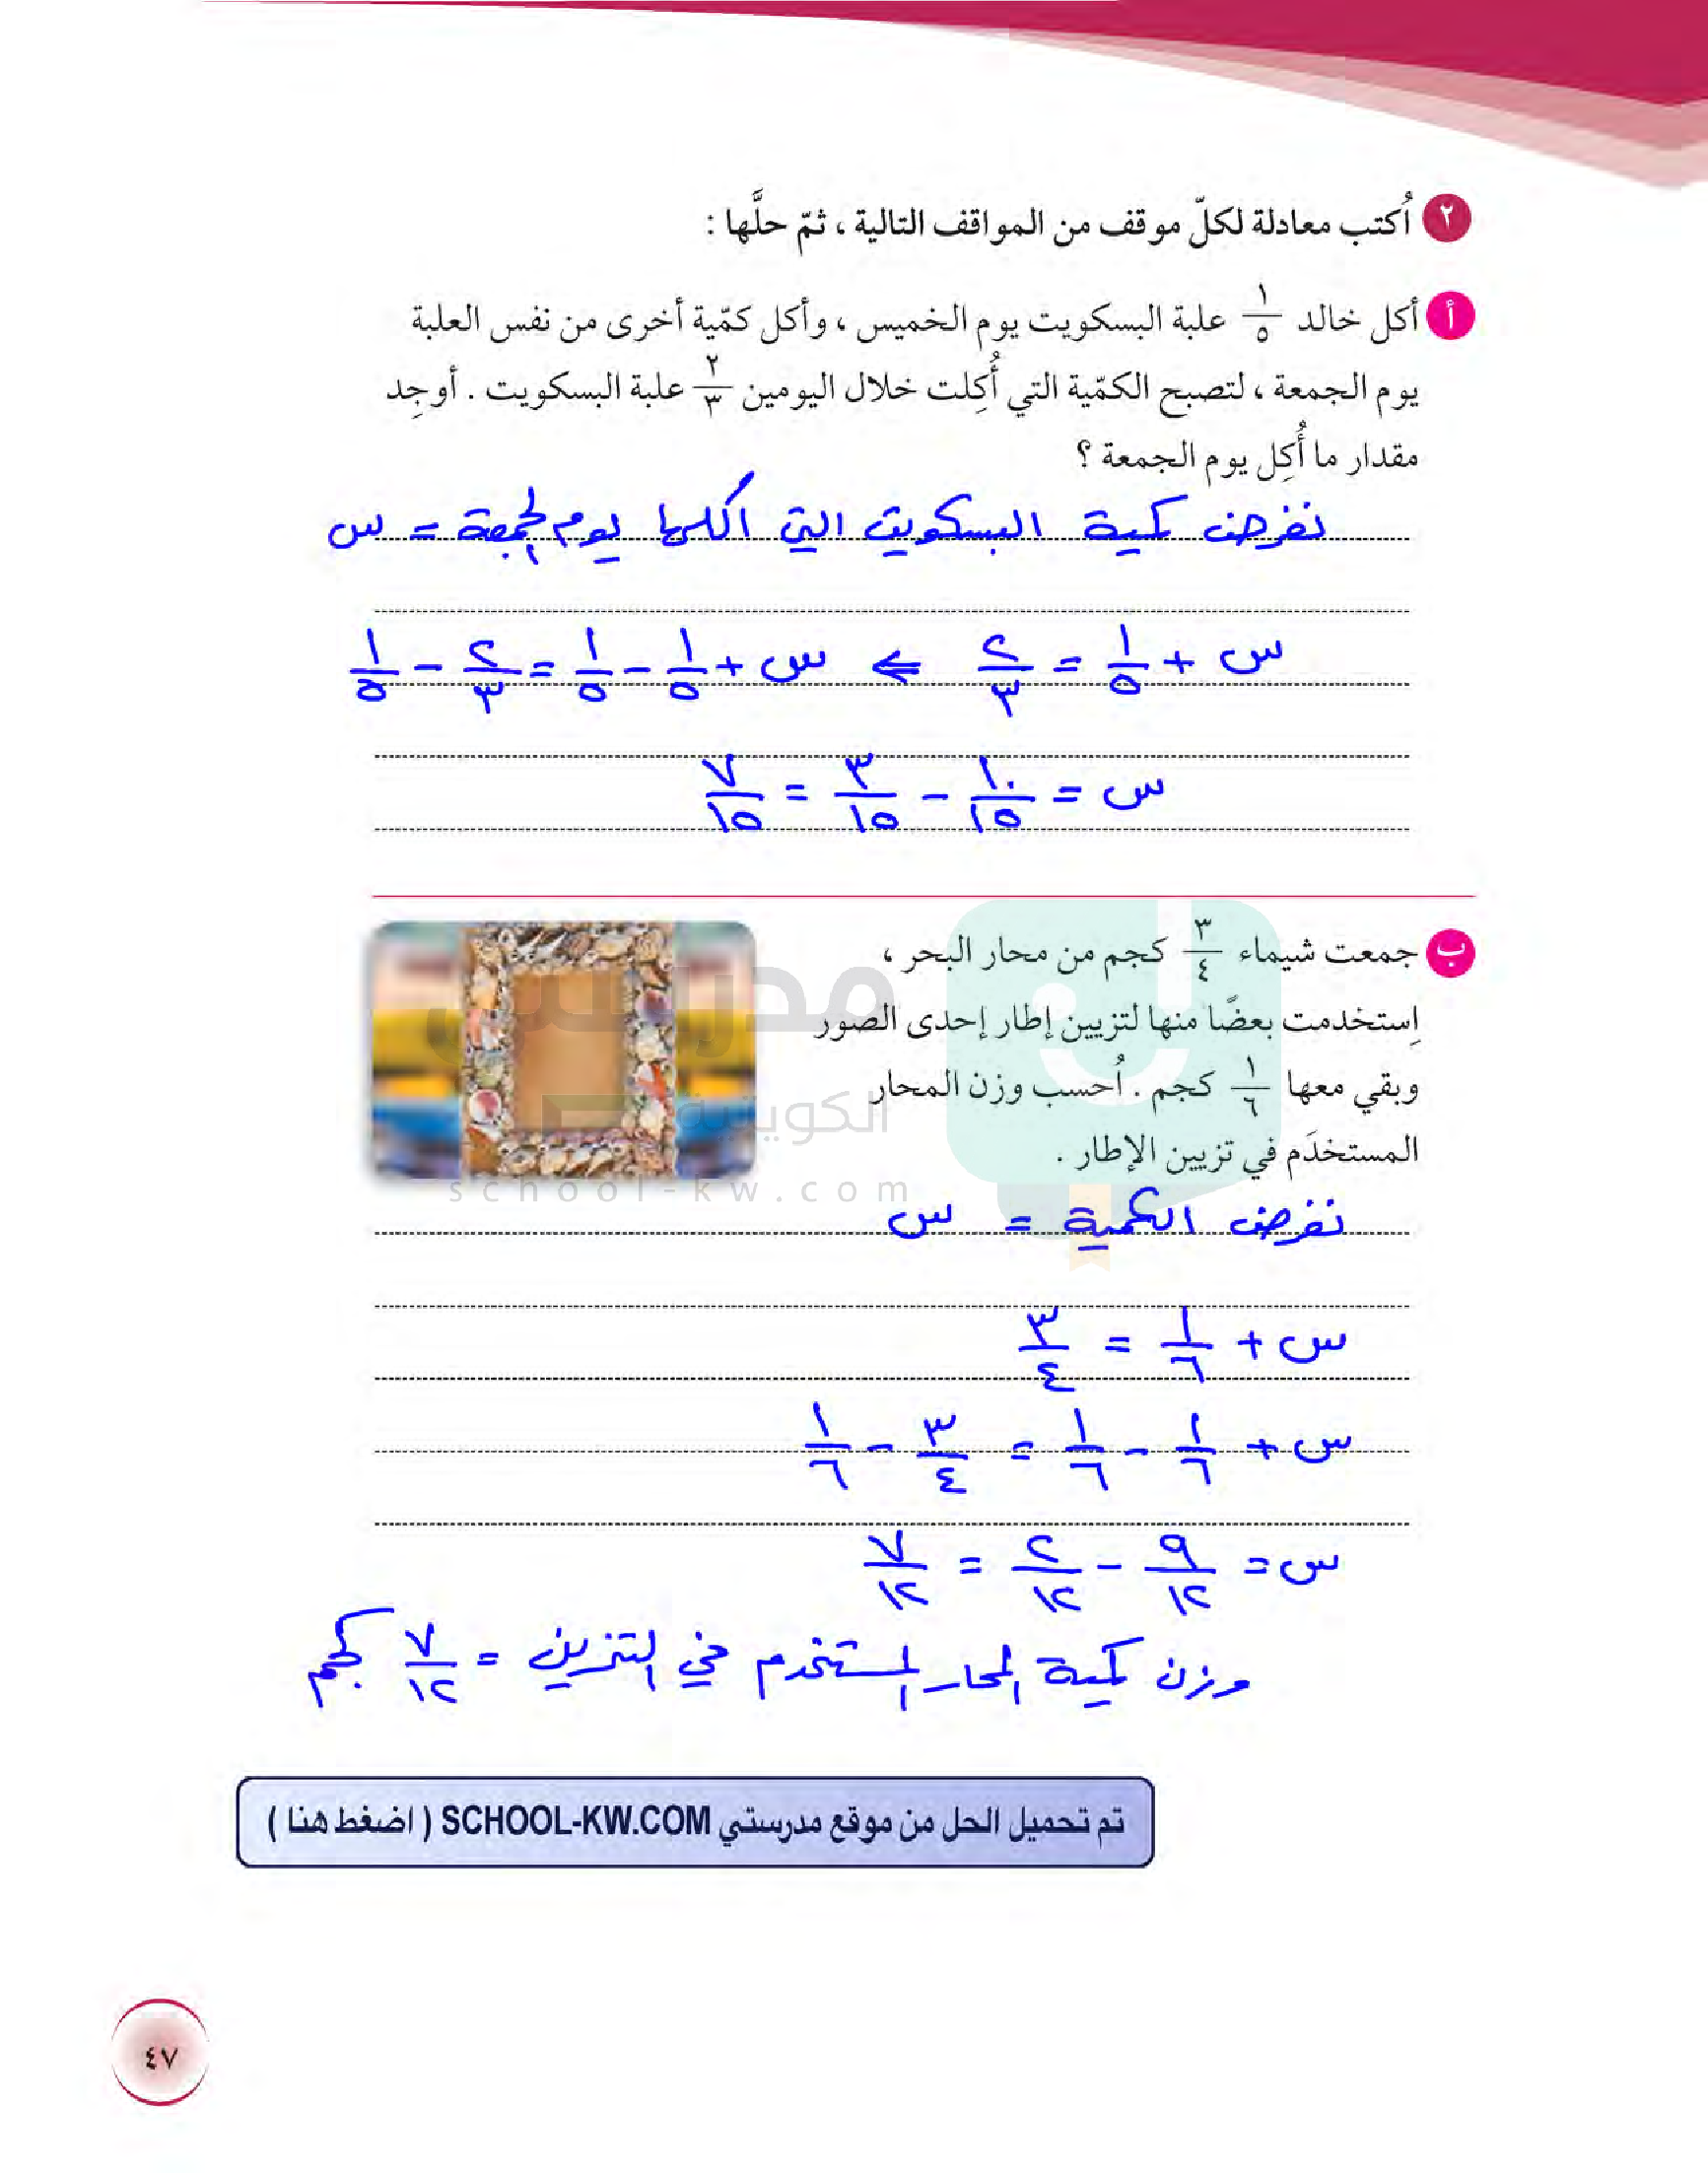 ٢ أُكتب معادلة لكلّ موقف من المواقف التالية ، ثمّ حلَّها :
أ أكل خالد ١/٥ علبة البسكويت يوم الخميس ، وأكل كمّية أخرى من نفس العلبة
يوم الجمعة ، لتصبح الكمّية التي أُكِلت خلال اليومين ٢/٣ علبة البسكويت . أوجِد
مقدار ما أُكِل يوم الجمعة ؟
نفرض كمية البسكويت التي اكلها يوم الجمعة = س
س + ١/٥ = ٢/٣ ⇐ س + ١/٥ − ١/٥ = ٢/٣ − ١/٥
س = ١٠/١٥ − ٣/١٥ = ٧/١٥
ب جمعت شيماء ٣/٤ كجم من محار البحر ،
اِستخدمت بعضًا منها لتزيين إطار إحدى الصور
وبقي معها ١/٦ كجم . اُحسب وزن المحار
المستخدَم في تزيين الإطار .
مدرستي
الكويتية
school-kw.com
نفرض الكمية = س
س + ١/٦ = ٣/٤
س + ١/٦ − ١/٦ = ٣/٤ − ١/٦
س = ٩/١٢ − ٢/١٢ = ٧/١٢
وزن كمية المحار المستخدم في التزيين = ٧/١٢ كجم
تم تحميل الحل من موقع مدرستي SCHOOL-KW.COM ( اضغط هنا )
٤٧